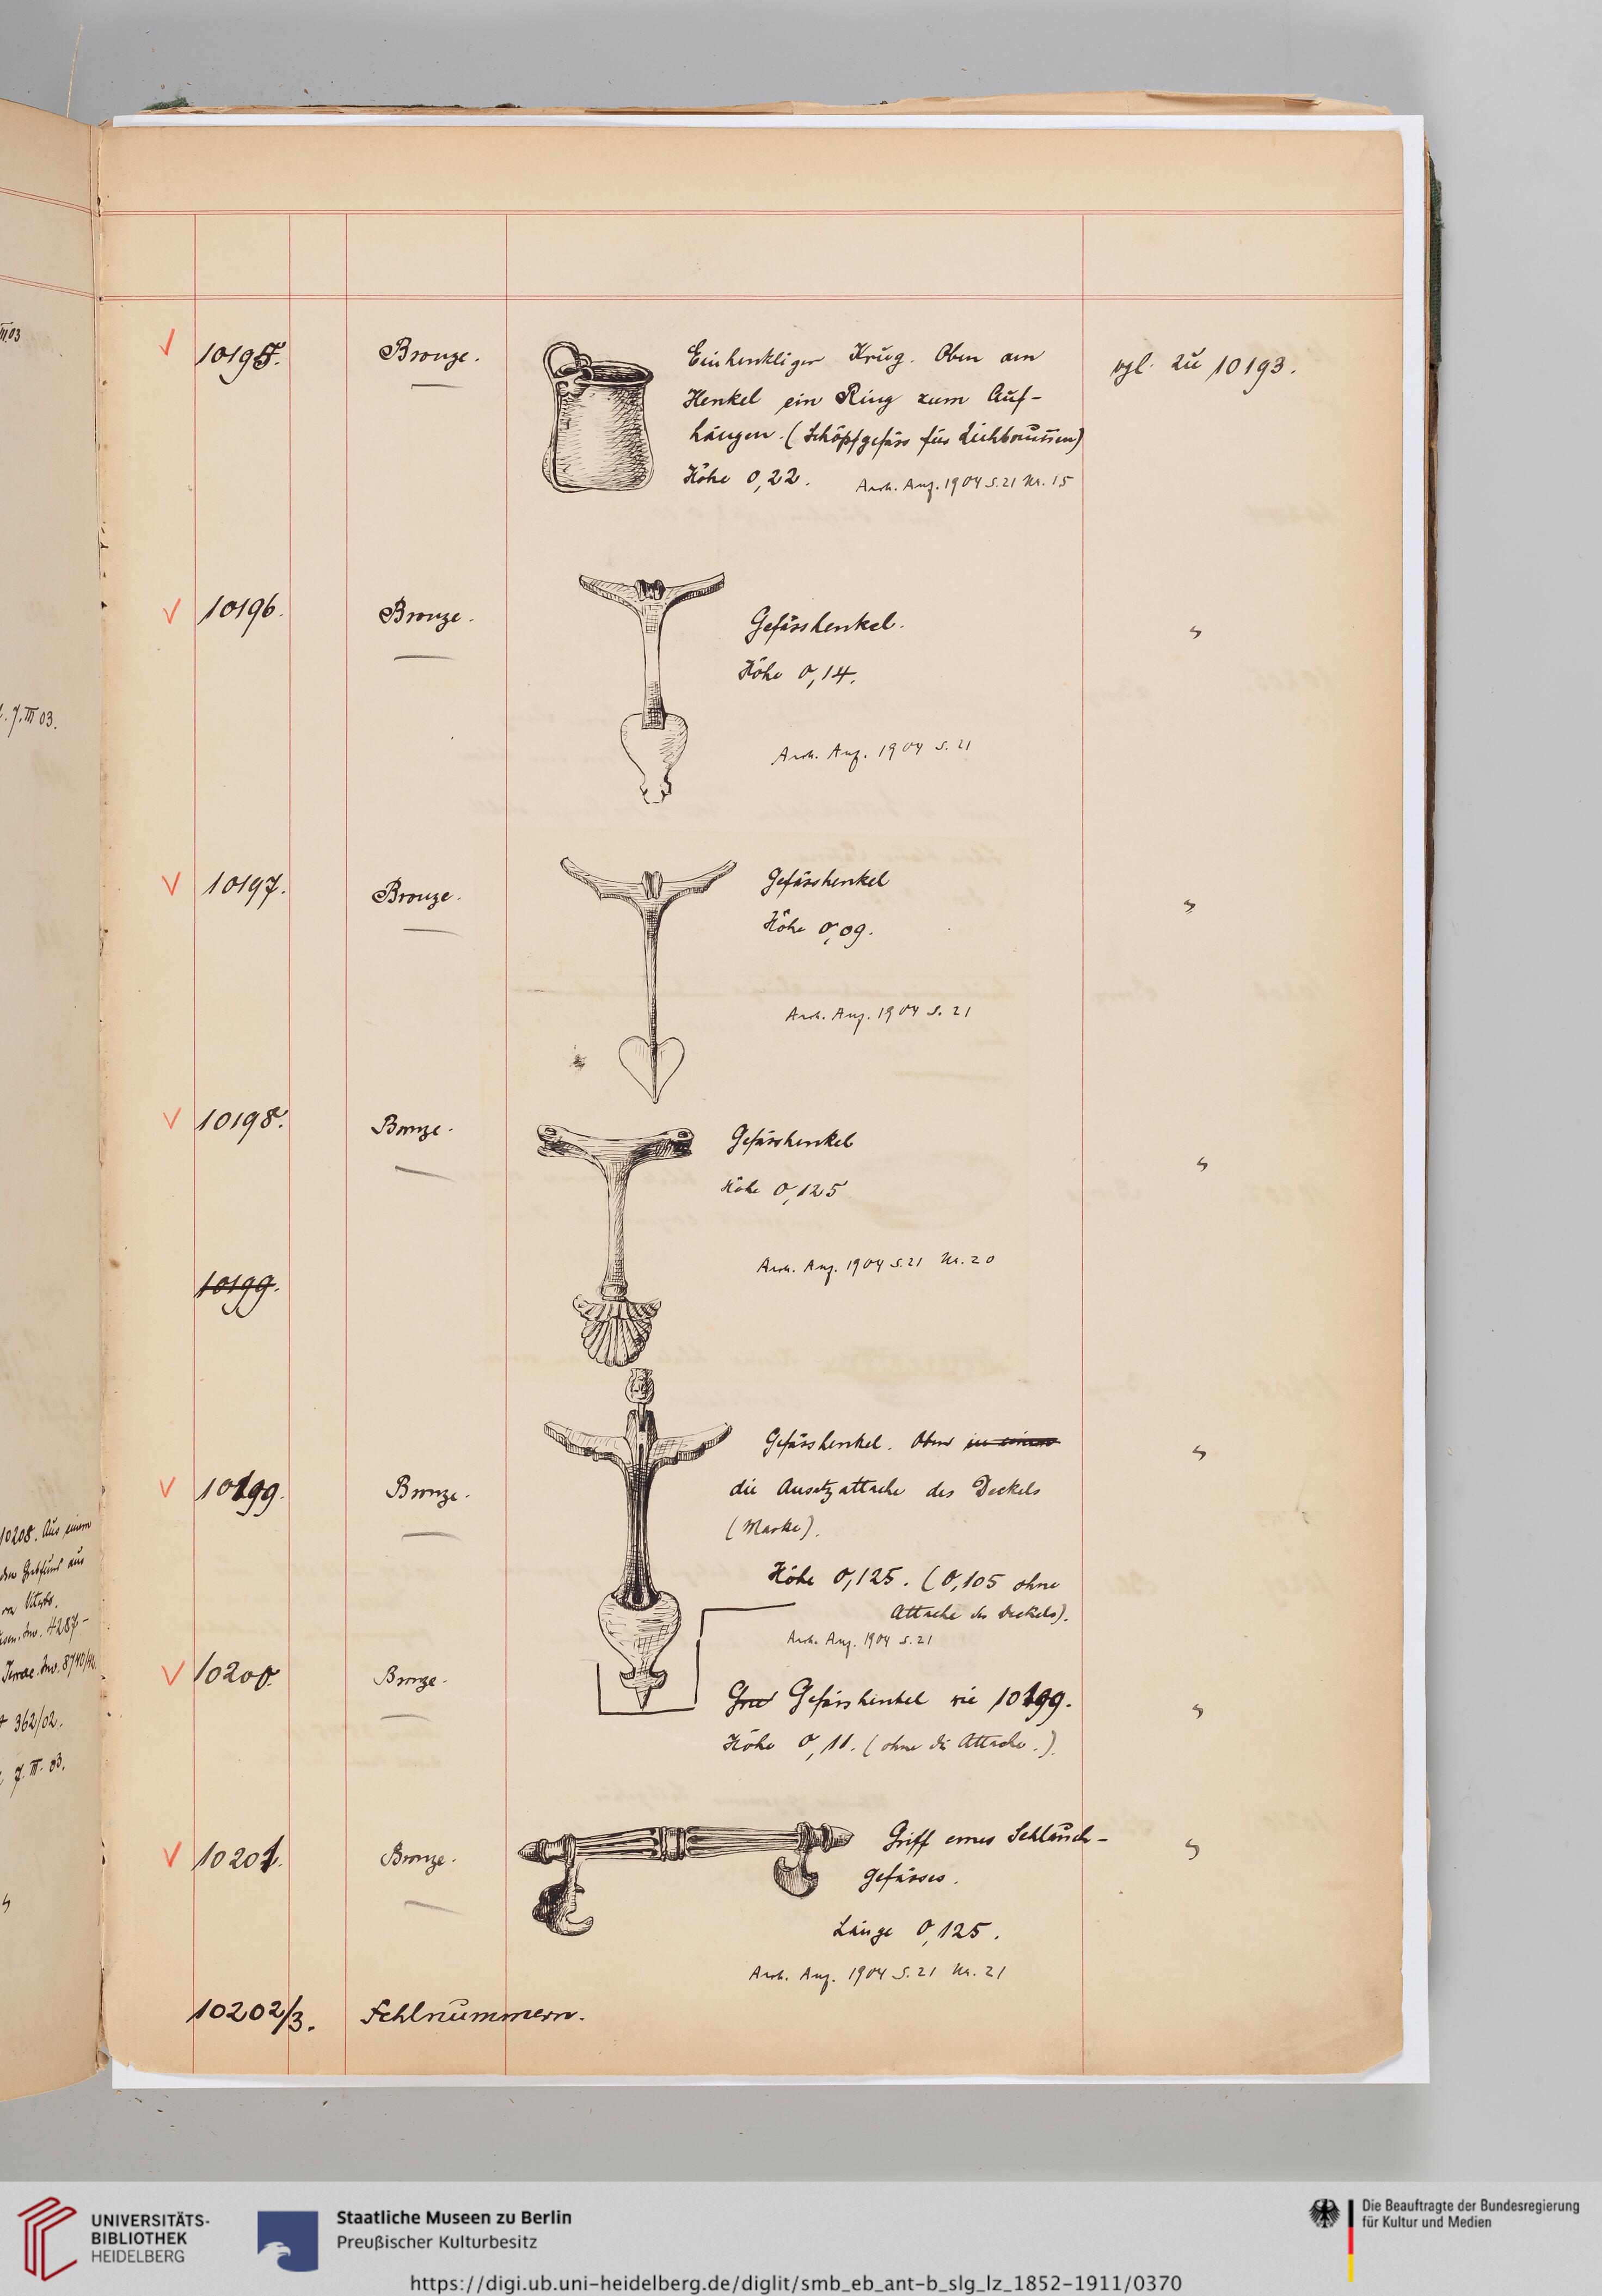 10195. Bronze. Einhenkliger Krug. Oben am vgl. zu 10193.
Henkel ein Ring zum Auf-
hängen. (Schöpfgefäss für Ziehbrunnen)
Höhe 0,22. Arch. Anz. 1904 S. 21 Nr. 15
10196. Bronze. Gefässhenkel. "
Höhe 0,14.
Arch. Anz. 1904 S. 21
10197. Bronze. Gefässhenkel "
Höhe 0,09.
Arch. Anz. 1904 S. 21
10198. Bronze. Gefässhenkel "
Höhe 0,125
Arch. Anz. 1904 S. 21 Nr. 20
10199.
10199. Bronze. Gefässhenkel. Oben in einem "
die Ansatzattache des Deckels
(Maske).
Höhe 0,125. (0,105 ohne
Attache des Deckels).
Arch. Anz. 1904 S. 21
10200. Bronze. Gefässhenkel wie 10199. "
Höhe 0,11. (ohne die Attache.).
10201. Bronze. Griff eines Schlauch- "
gefässes.
Länge 0,125.
Arch. Anz. 1904 S. 21 Nr. 21
10202/3. Fehlnummern.
III.03
7. III 03.
10208. Aus einem
aus
Inv. 4287-
Inv. 8740/
362/02.
7. III. 03.
"
UNIVERSITÄTS-
BIBLIOTHEK
HEIDELBERG
Staatliche Museen zu Berlin
Preußischer Kulturbesitz
Die Beauftragte der Bundesregierung
für Kultur und Medien
https://digi.ub.uni-heidelberg.de/diglit/smb_eb_ant-b_slg_lz_1852-1911/0370